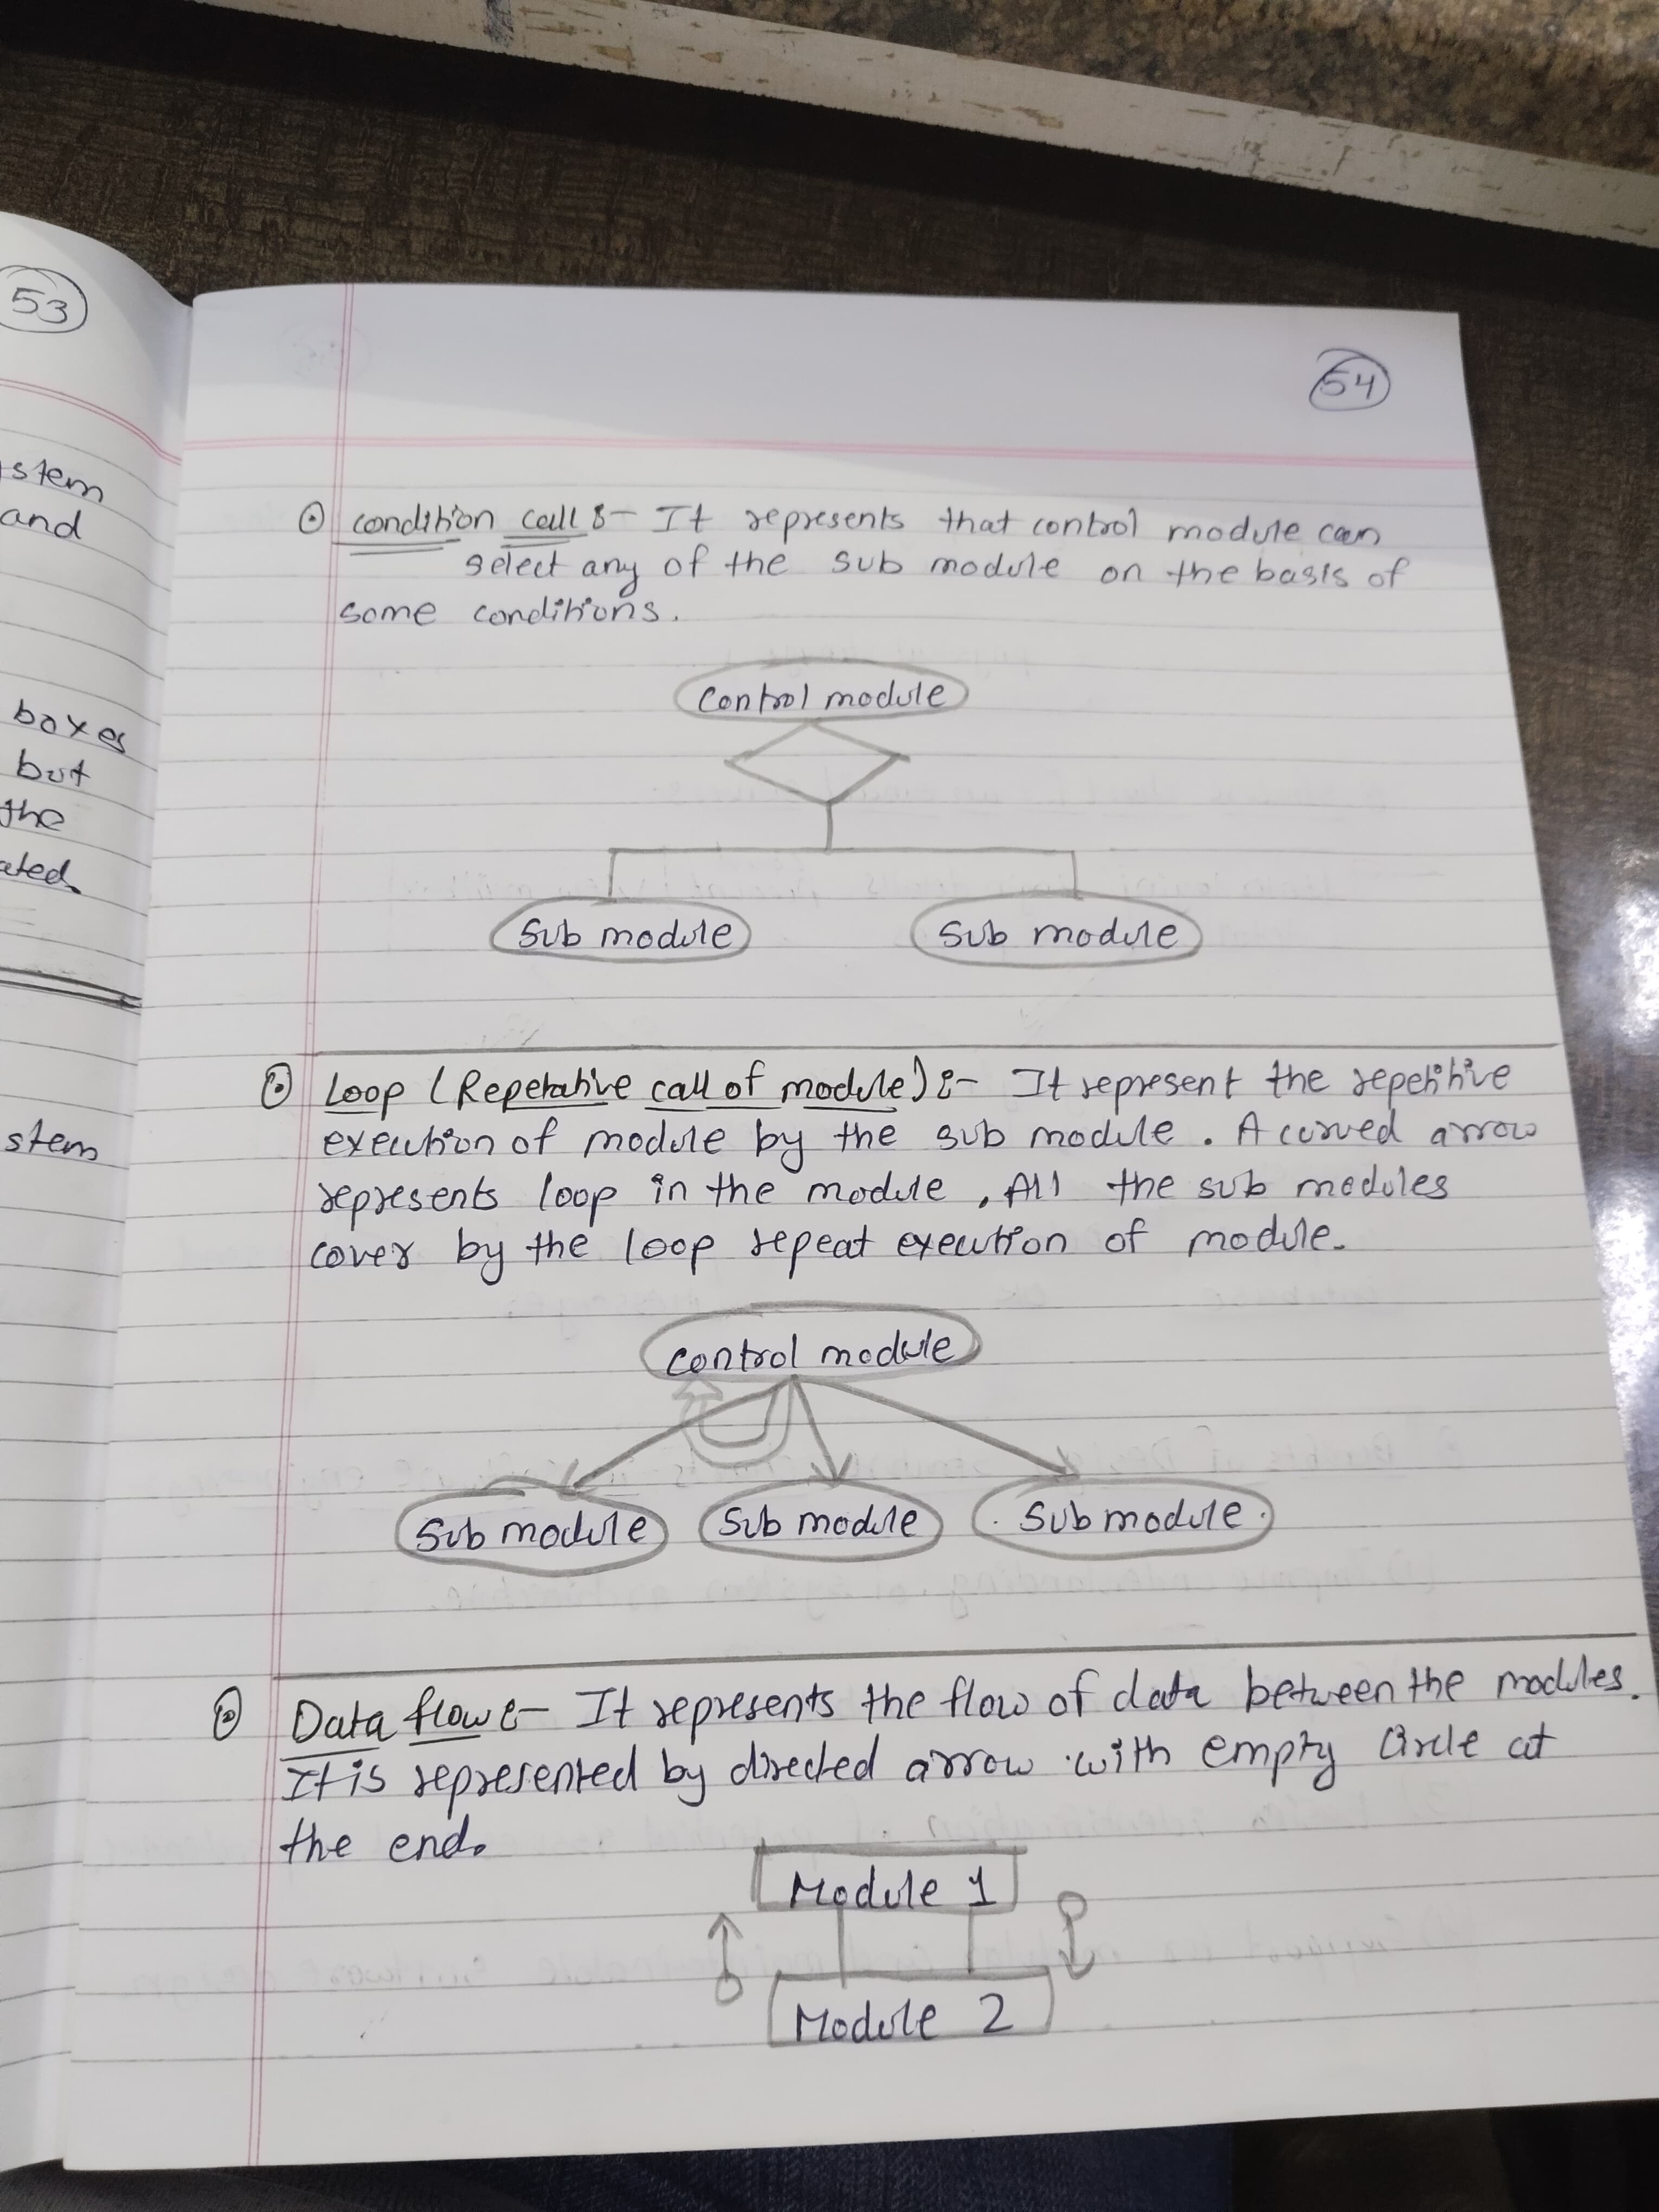 53
stem
and
boxes
but
the
ated.
stem
54
condition call :- It represents that control module can
select any of the sub module on the basis of
some conditions.
Control module
Sub module
Sub module
Loop (Repetative call of module) :- It represent the repetitive
execution of module by the sub module. A curved arrow
represents loop in the module, All the sub modules
cover by the loop repeat execution of module.
Control module
Sub module
Sub module
Sub module
Data flow :- It represents the flow of data between the modules.
It is represented by directed arrow with empty circle at
the end.
Module 1
Module 2